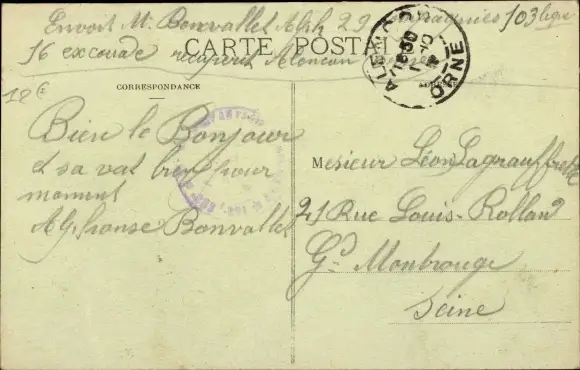 Envoit M. Bonvallet Alph 29 Compagnies 103 ligne
16 excouade Alencon
CARTE POSTALE
ALENÇON
18 30
ORNE
CORRESPONDANCE
ADRESSE
Bien le Bonjour
et sa vat bien pour
moment
Alphonse Bonvallet
Mesieur Léon Lagrauffrette
21 Rue Louis-Rolland
Gd Montrouge
Seine